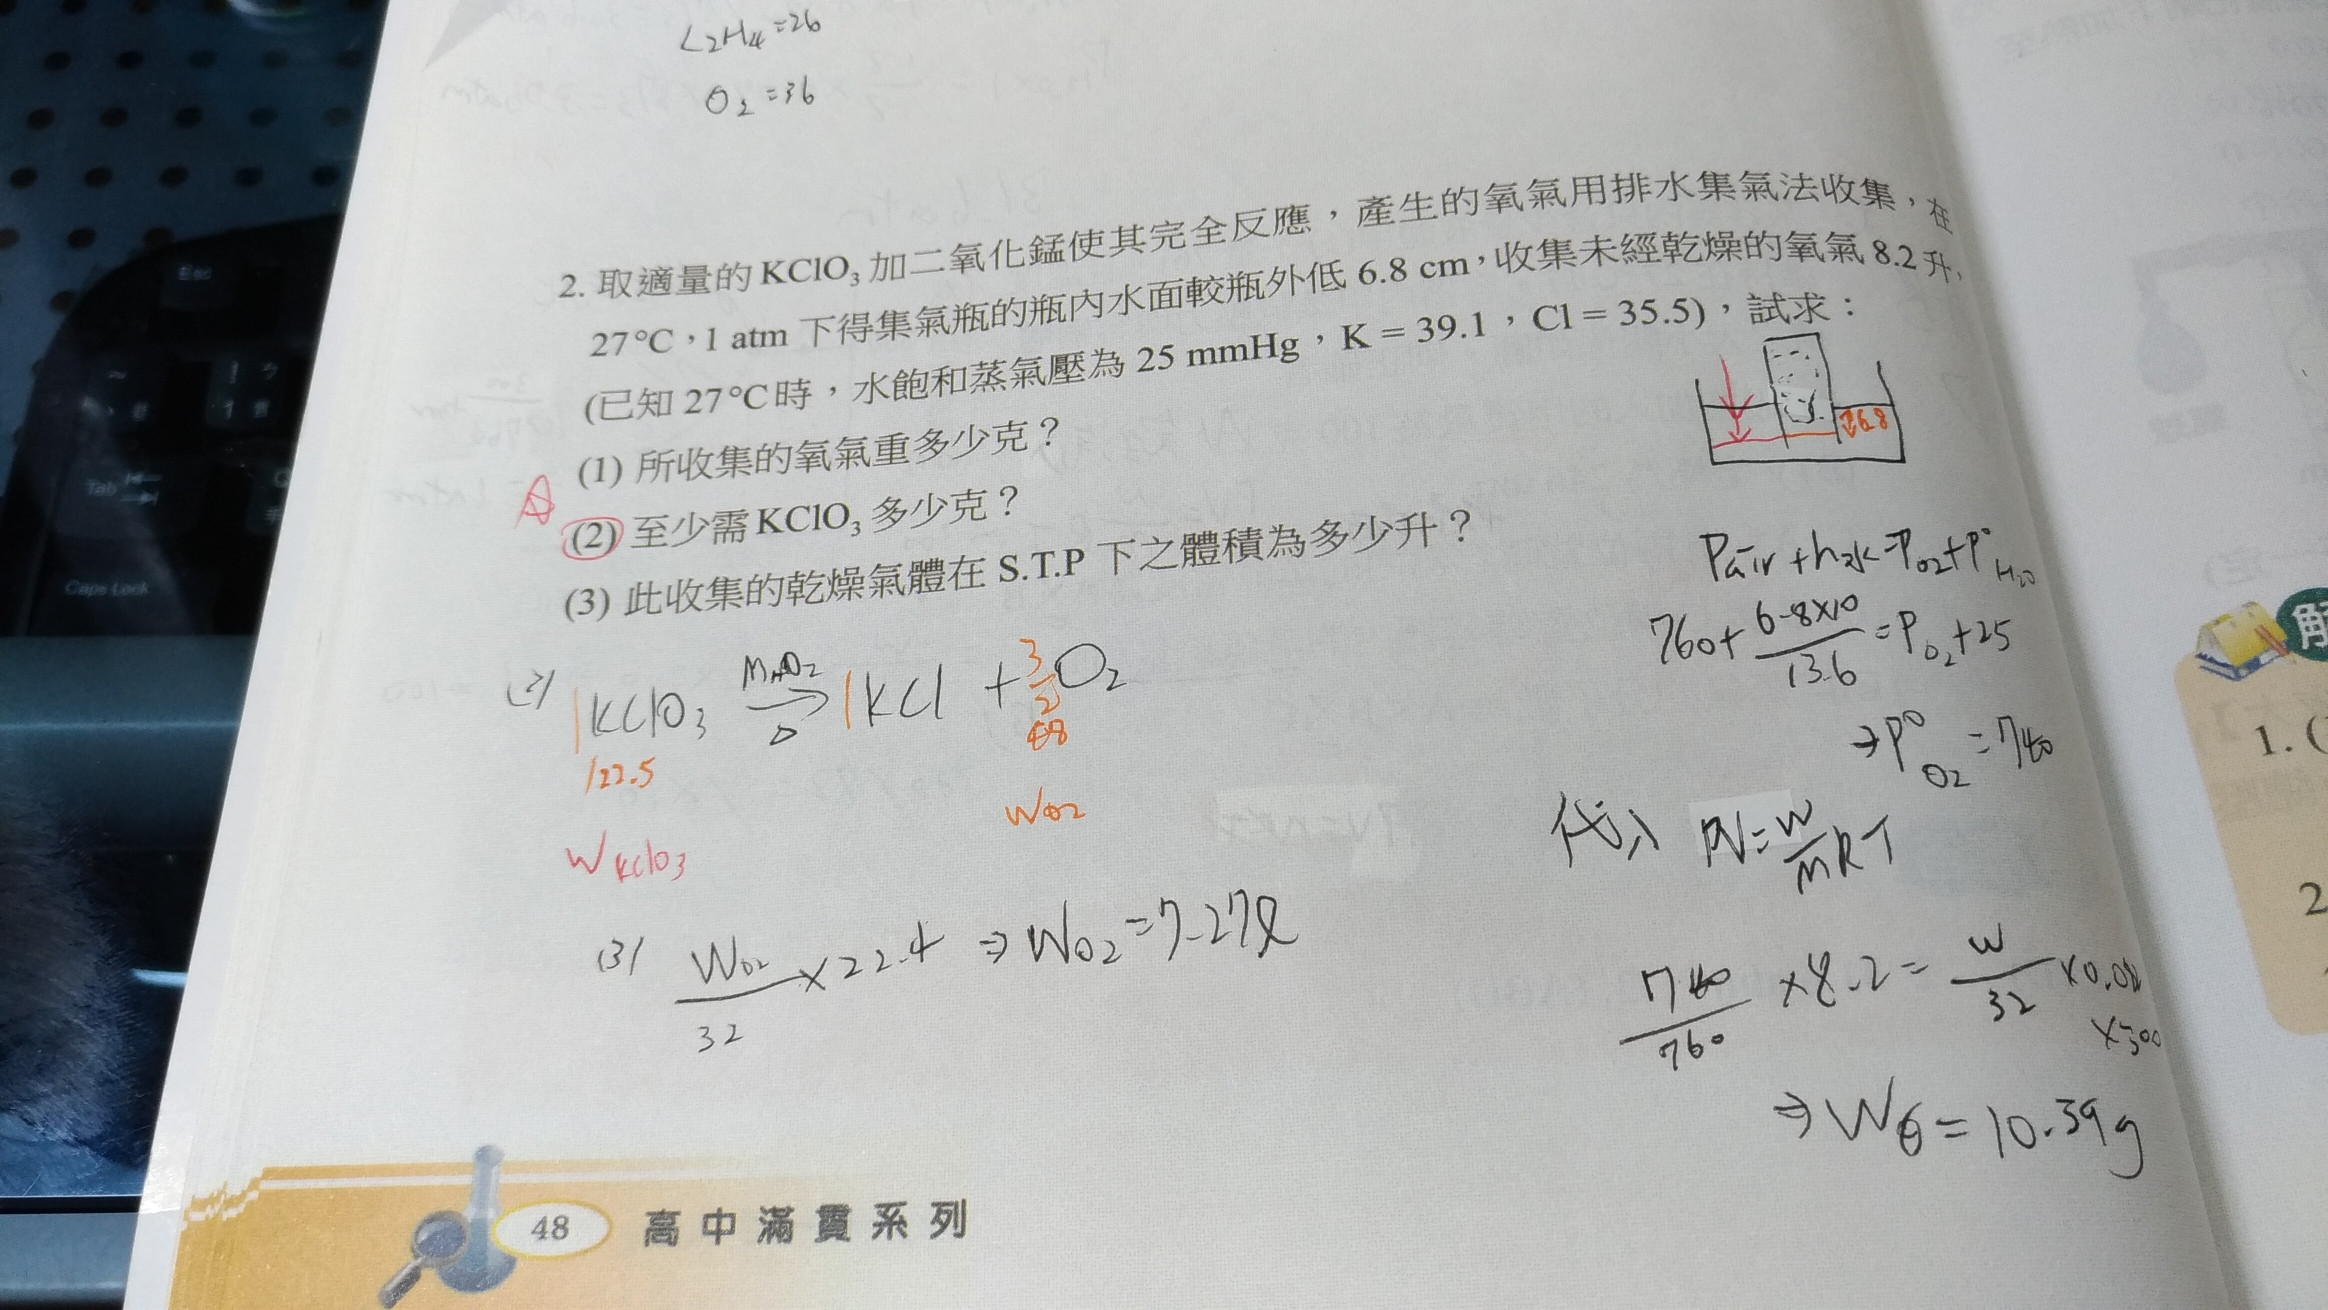 C₂H₄=26
O₂=36
2. 取適量的 KClO₃ 加二氧化錳使其完全反應，產生的氧氣用排水集氣法收集，在
27°C，1 atm 下得集氣瓶的瓶內水面較瓶外低 6.8 cm，收集未經乾燥的氧氣 8.2 升，
(已知 27°C時，水飽和蒸氣壓為 25 mmHg，K = 39.1，Cl = 35.5)，試求：
(1) 所收集的氧氣重多少克？
(2) 至少需 KClO₃ 多少克？
(3) 此收集的乾燥氣體在 S.T.P 下之體積為多少升？
6.8
Pair+h水=PO₂+P°H₂O
760+6.8×10/13.6=PO₂+25
⇒P°O₂=740
代入 PV=W/M RT
740/760×8.2=W/32×0.082
×300
⇒W=10.39g
(2) 1KClO₃ MnO₂→Δ 1KCl+3/2O₂
122.5 48
WKClO₃ WO₂
(3) WO₂/32×22.4⇒WO₂=7.27ℓ
48 高中滿貫系列
Esc
Tab
Caps Lock
解
1. (
2